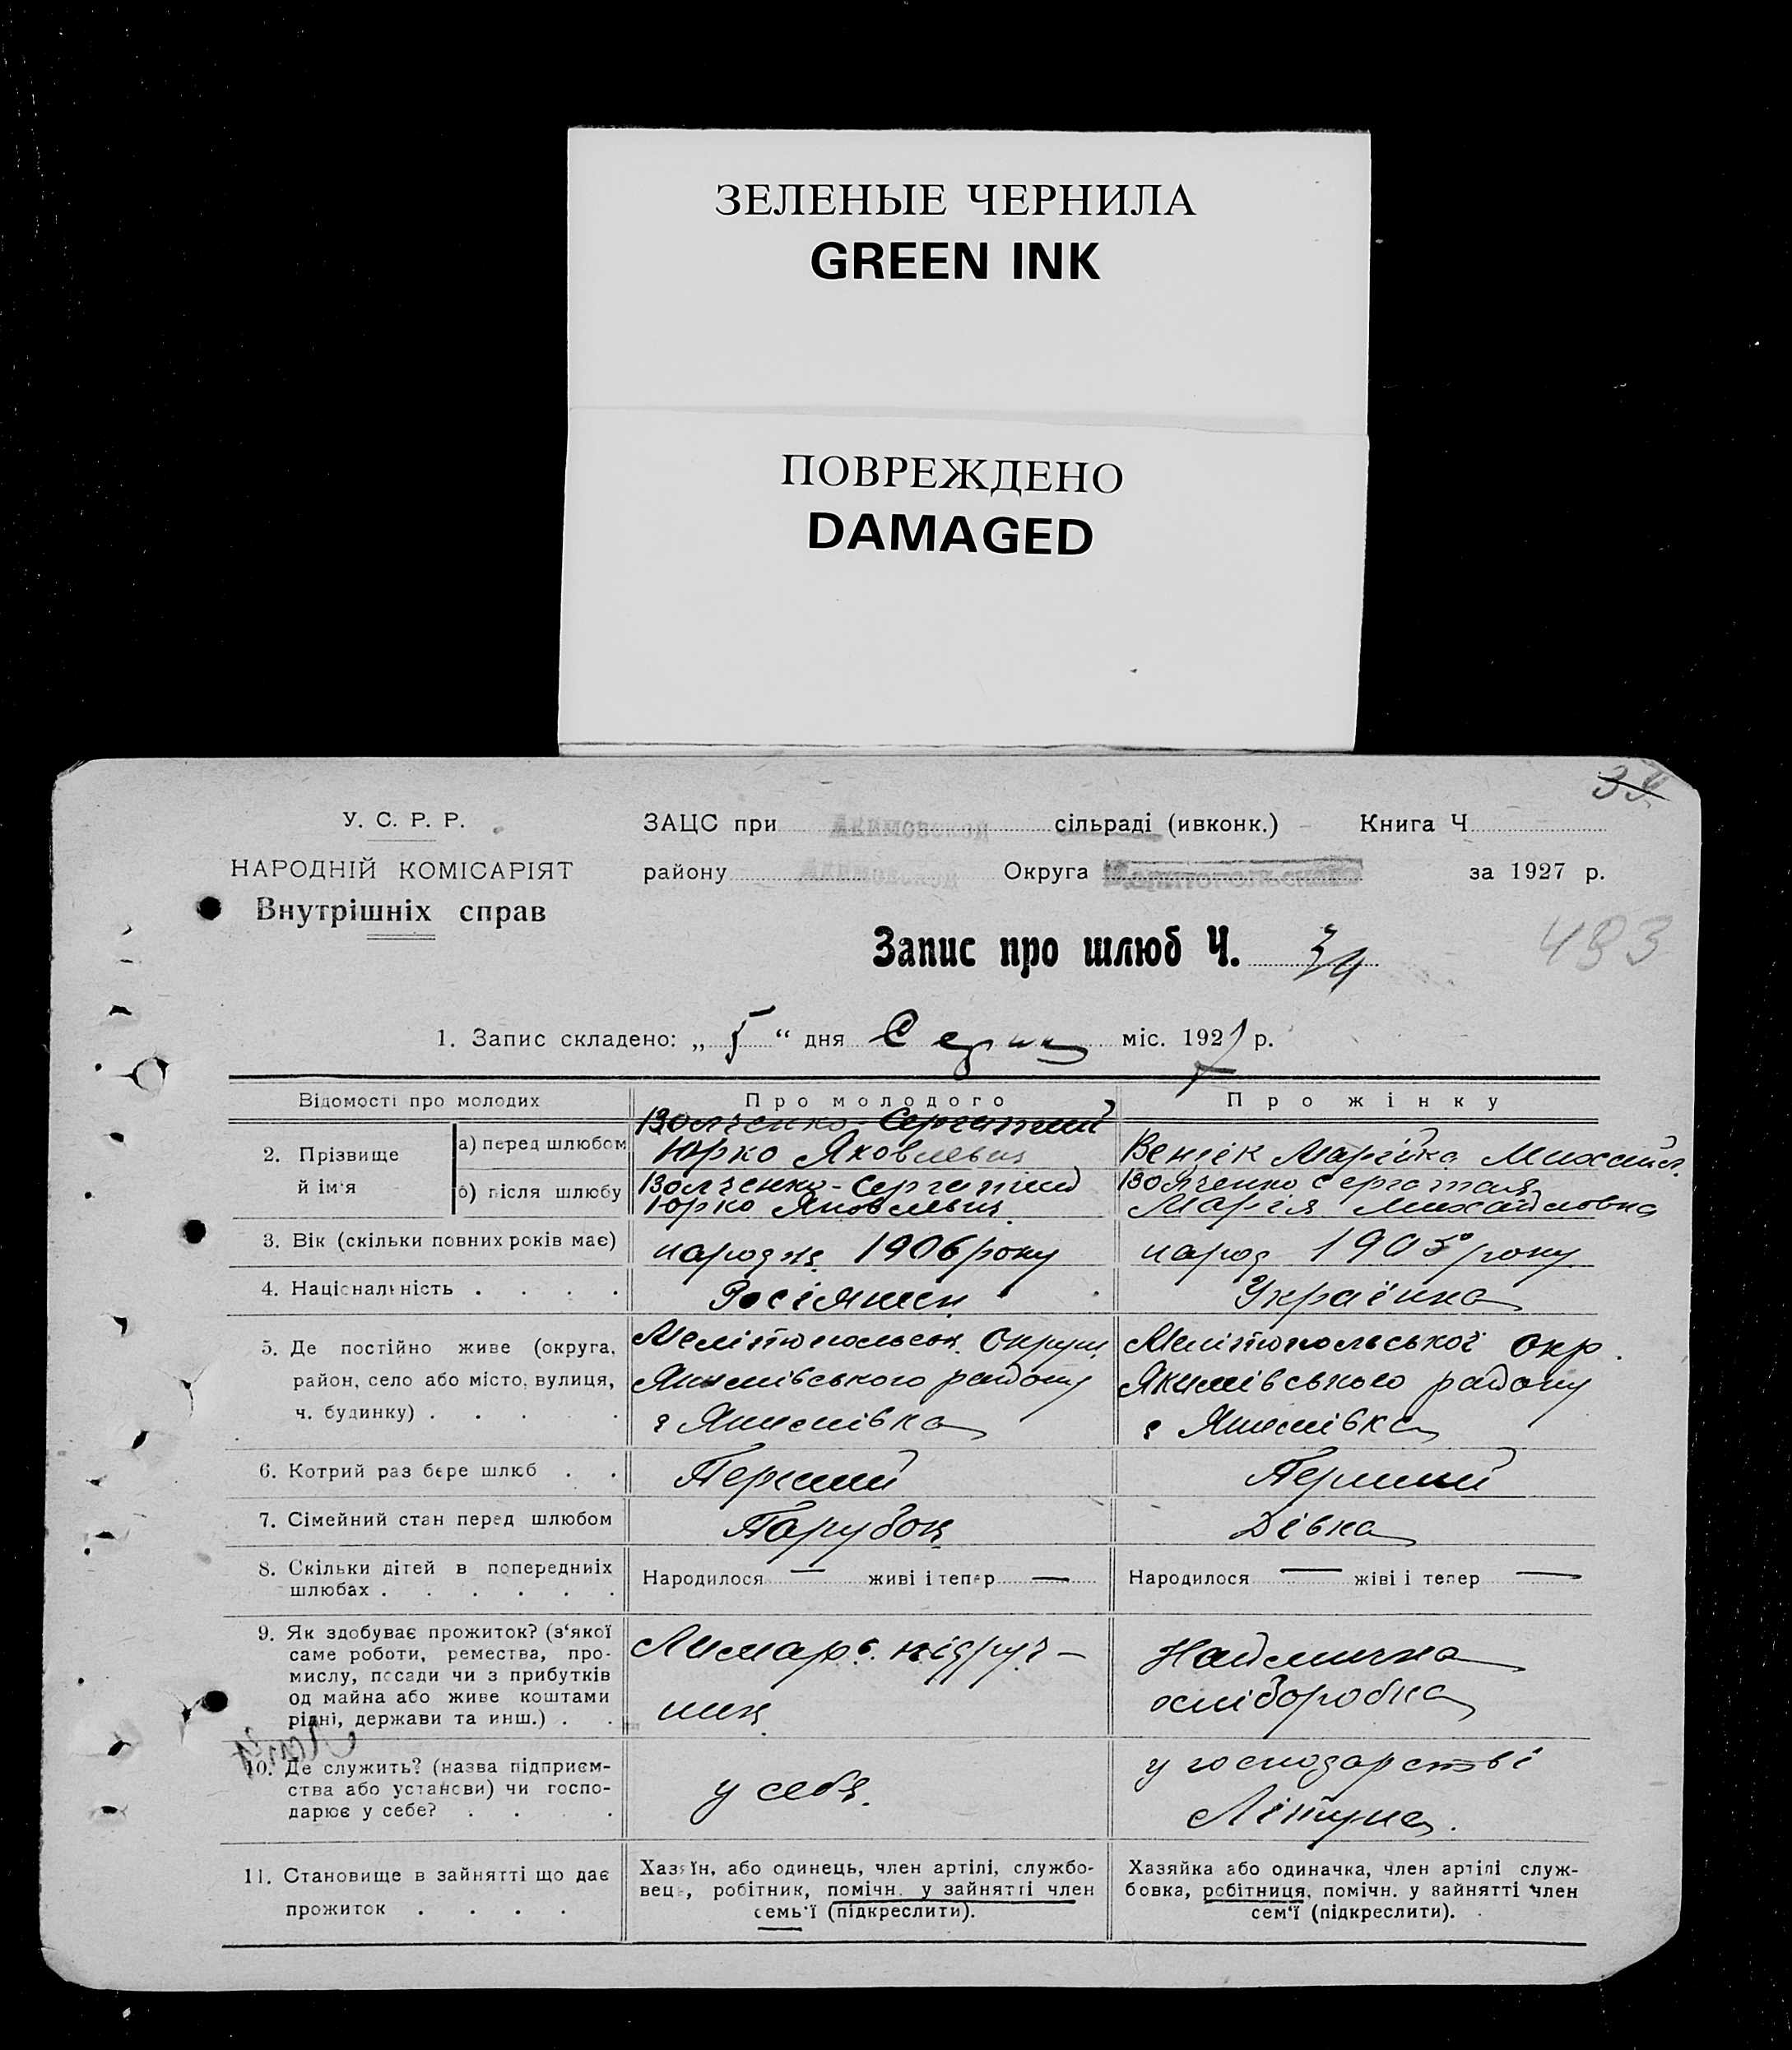 ЗЕЛЕНЫЕ ЧЕРНИЛА
GREEN INK
ПОВРЕЖДЕНО
DAMAGED
34
У. С. Р. Р.
ЗАЦС при Акимовской сільраді (ивконк.) Книга Ч
НАРОДНІЙ КОМІСАРІЯТ
району Акимовской Округа за 1927 р.
Внутрішніх справ
Запис про шлюб Ч. 34
483
1. Запис складено: „ 5 “ дня Серпня міс. 1927 р.
Відомості про молодих
Про молодого
Про жінку
2. Прізвище й ім'я
а) перед шлюбом
Юрко Яковлевич
Марійка Михайл.
б) після шлюбу
Юрко Яковлевич
Марія Михайловна
3. Вік (скільки повних років має)
народж. 1906 року
народ 1905 року
4. Національність . . . .
Росіянин
Українка
5. Де постійно живе (округа,
район, село або місто, вулиця,
ч. будинку) . . . .
Мелітопольськ. Округи
Якимівського району
с Якимівка
Мелітопольської окр.
Якимівського району
с Якимівка
6. Котрий раз бере шлюб . .
Перший
Перший
7. Сімейний стан перед шлюбом
Парубок
Дівка
8. Скільки дітей в попередниіх
шлюбах . . . . . .
Народилося — живі і тепер —
Народилося — жіві і тепер —
9. Як здобуває прожиток? (з‘якої
саме роботи, ремества, про-
мислу, посади чи з прибутків
од майна або живе коштами
рідні, держави та инш.) . .
Лимарь. підруч-
ник
Наймичка
хліборобка
10. Де служить? (назва підприєм-
ства або установи) чи госпо-
дарює у себе? . . . .
у себя.
у господарстві
11. Становище в зайнятті що дає
прожиток . . . .
Хазяїн, або одинець, член артілі, службо-
вець, робітник, помічн. у зайнятті член
семь‘ї (підкреслити).
Хазяйка або одиначка, член артілі служ-
бовка, робітниця, помічн. у зайнятті член
сем‘ї (підкреслити).